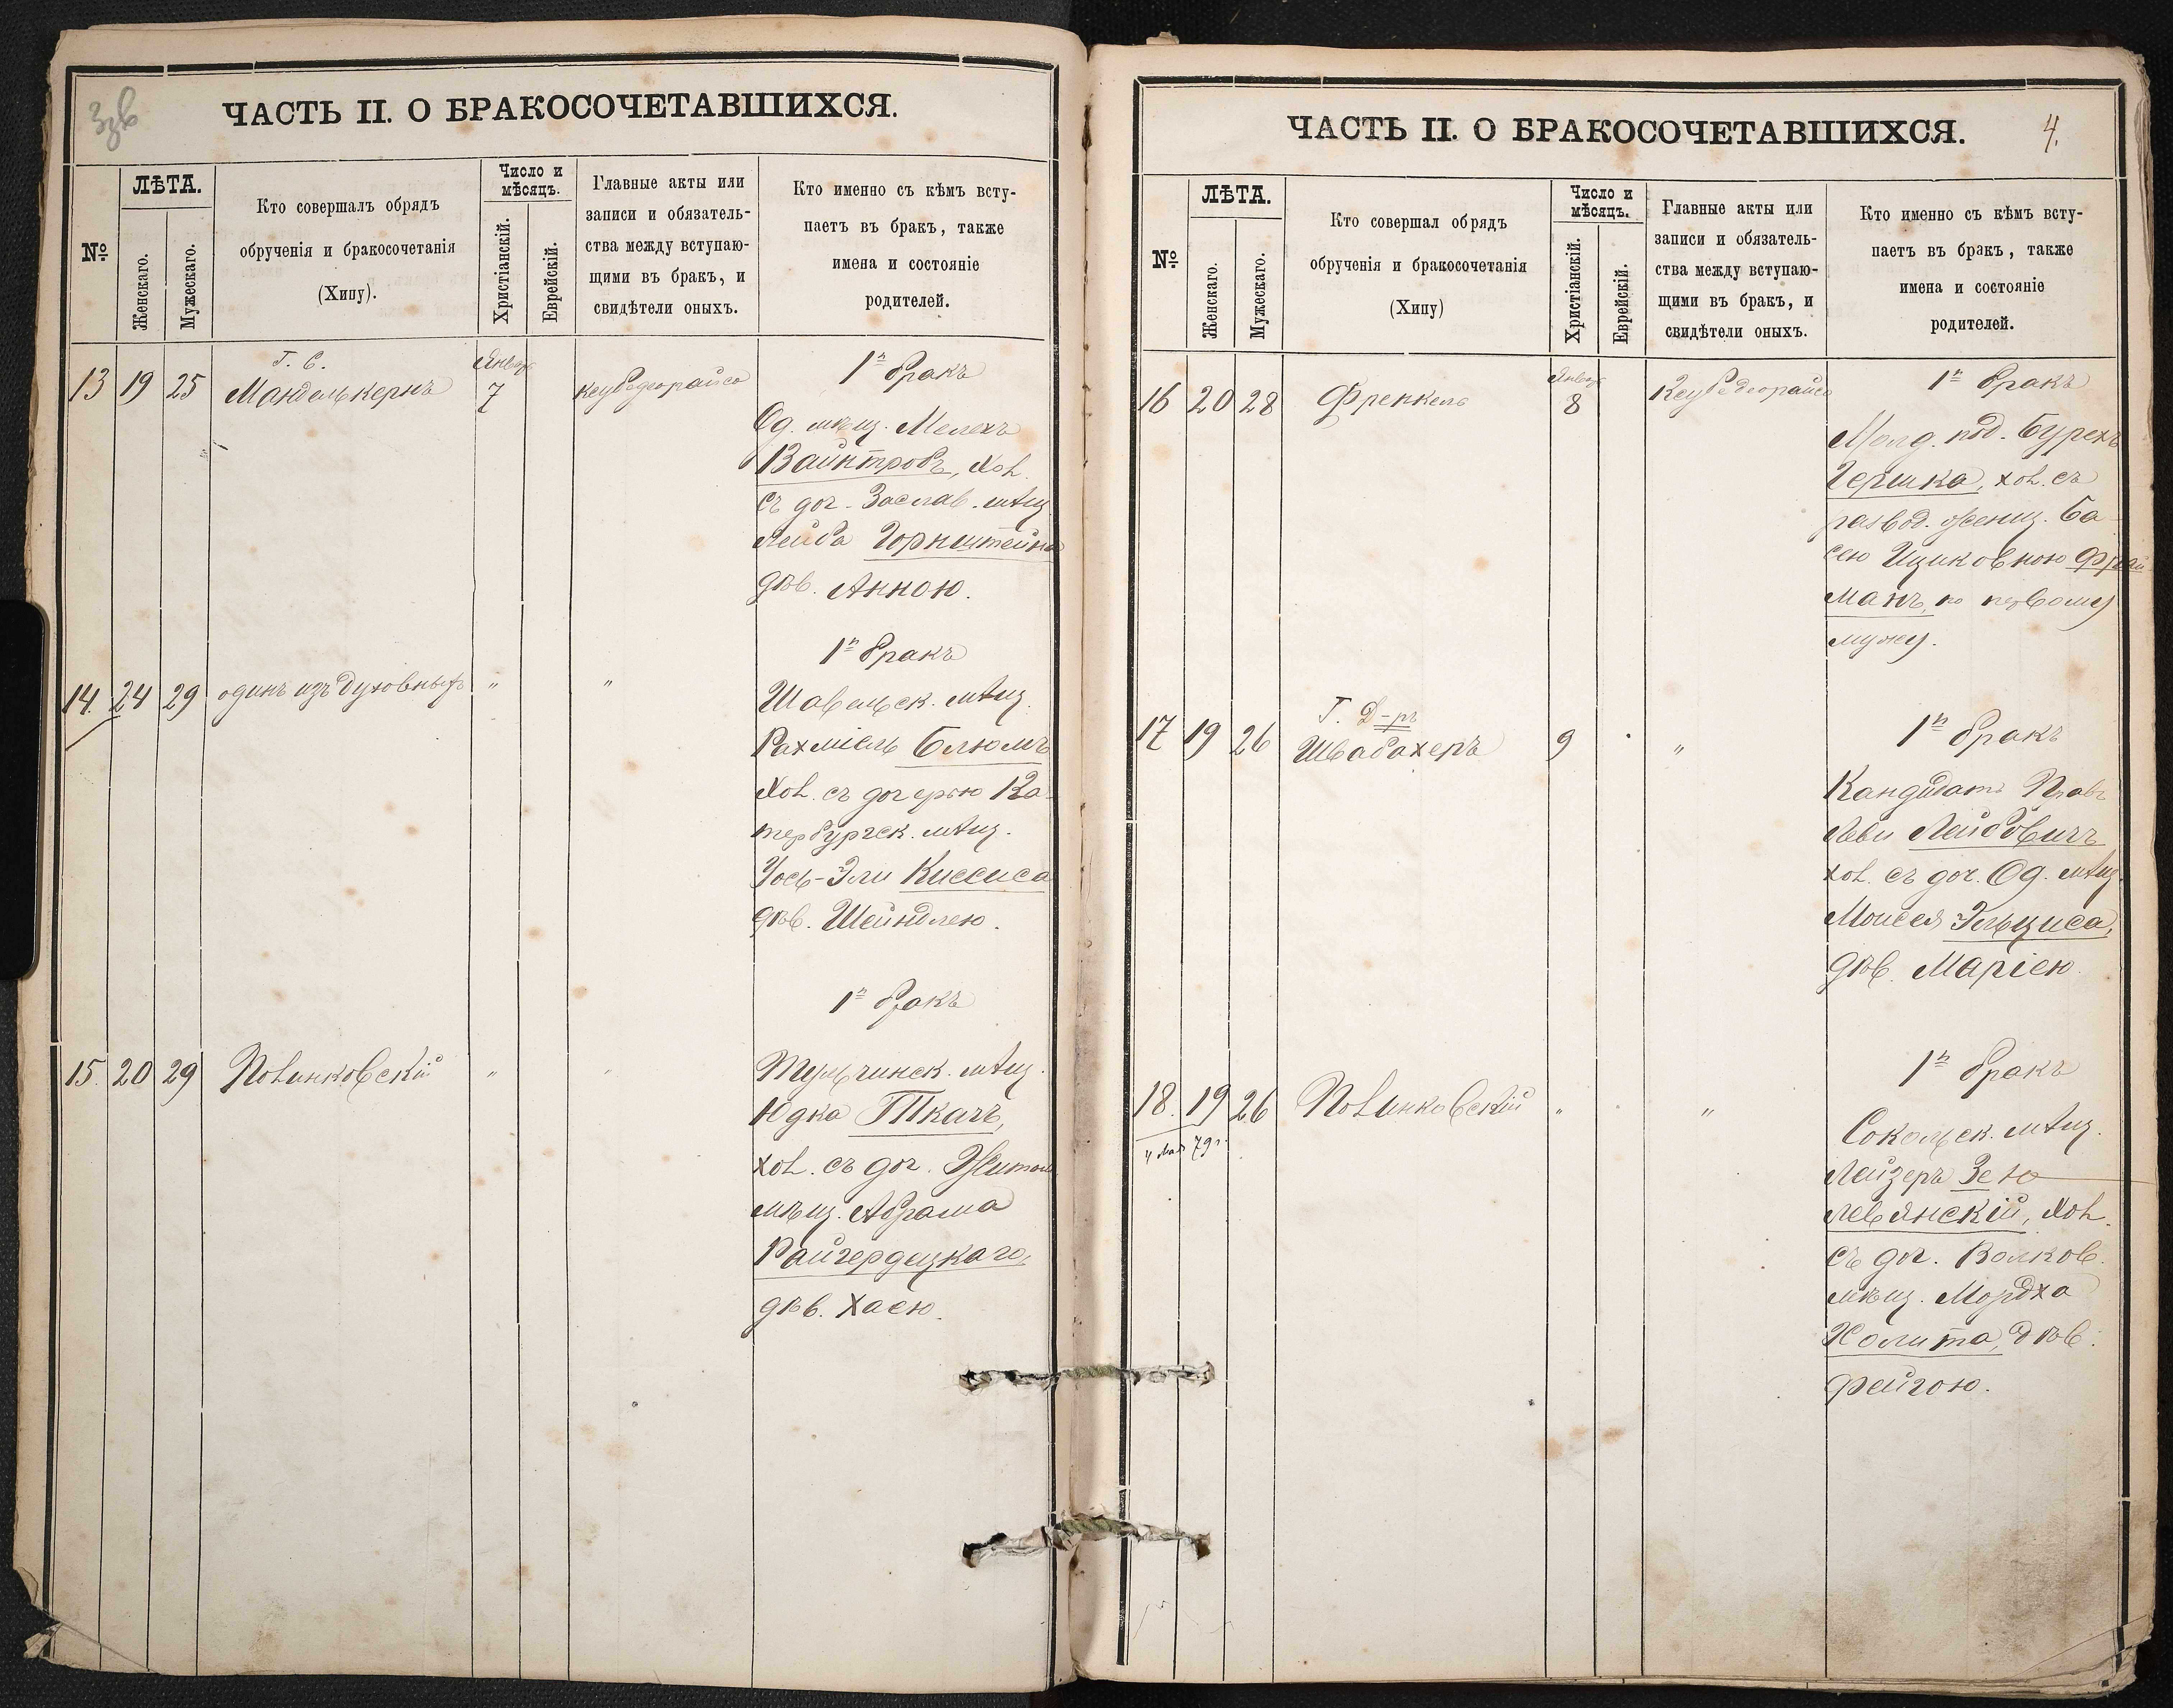 ЧАСТЬ II. О БРАКОСОЧЕТАВШИХСЯ.
№
ЛѢТА.
Женскаго.
Мужескаго.
Кто совершалъ обрядъ
обрученія и бракосочетанія
(Хипу).
Число и
мѣсяцъ.
Христіанскій.
Еврейскій.
Главные акты или
записи и обязатель-
ства между вступаю-
щими въ бракъ, и
свидѣтели оныхъ.
Кто именно съ кѣмъ всту-
паетъ въ бракъ, также
имена и состояніе
родителей.
13 19 25
Г. С.
Манделькернъ
Январ
7
1й бракъ
Од. мѣщ. Мелехъ
Вайнтробъ, хол.
съ доч. Заслав. мѣщ.
Лейба Горнштейна
дѣв. Анною.
14. 24 29 одинъ изъ духовныхъ " "
1й бракъ
Шавельск. мѣщ.
Рахміель Блюмъ
хол. съ дочерью Ка-
тербургск. мѣщ.
Уось-Эли Киссиса
дѣв. Шейндлею.
15. 20 29 Полинковскій " "
1й бракъ
Тульчинск. мѣщ.
Юдка Ткачъ,
хол. съ доч. Житом
мѣщ. Абрама
Райгердецкаго,
дѣв. Хаею.
ЧАСТЬ II. О БРАКОСОЧЕТАВШИХСЯ.
4.
№
ЛѢТА.
Женскаго.
Мужескаго.
Кто совершал обрядъ
обрученія и бракосочетанія
(Хипу)
Число и
мѣсяцъ.
Христіанскій.
Еврейскій.
Главные акты или
записи и обязатель-
ства между вступаю-
щими въ бракъ, и
свидѣтели оныхъ.
Кто именно съ кѣмъ всту-
паетъ въ бракъ, также
имена и состояніе
родителей.
16 20 28 Френкель
Январ
8
1й бракъ
Молд. под. Бурехъ
Гершка, хол. съ
развод. женщ. Ба-
сею Ициковною Фрай
манъ, по первому
мужу.
17 19 26
Г. Д-ръ
Швабахеръ
9 "
1й бракъ
Кандидатъ Правъ
Леви Лейбовичъ
хол. съ доч. Од. мѣщ.
Моисея Эльциса,
дѣв. Маріею.
18. 19 26 Полинковскій " "
4 мая 79 г.
1й бракъ
Сокольск. мѣщ.
Лейзеръ Зе
левянскій, хол.
съ доч. Волков.
мѣщ. Мордха
Холита, дѣв.
Фейгою.